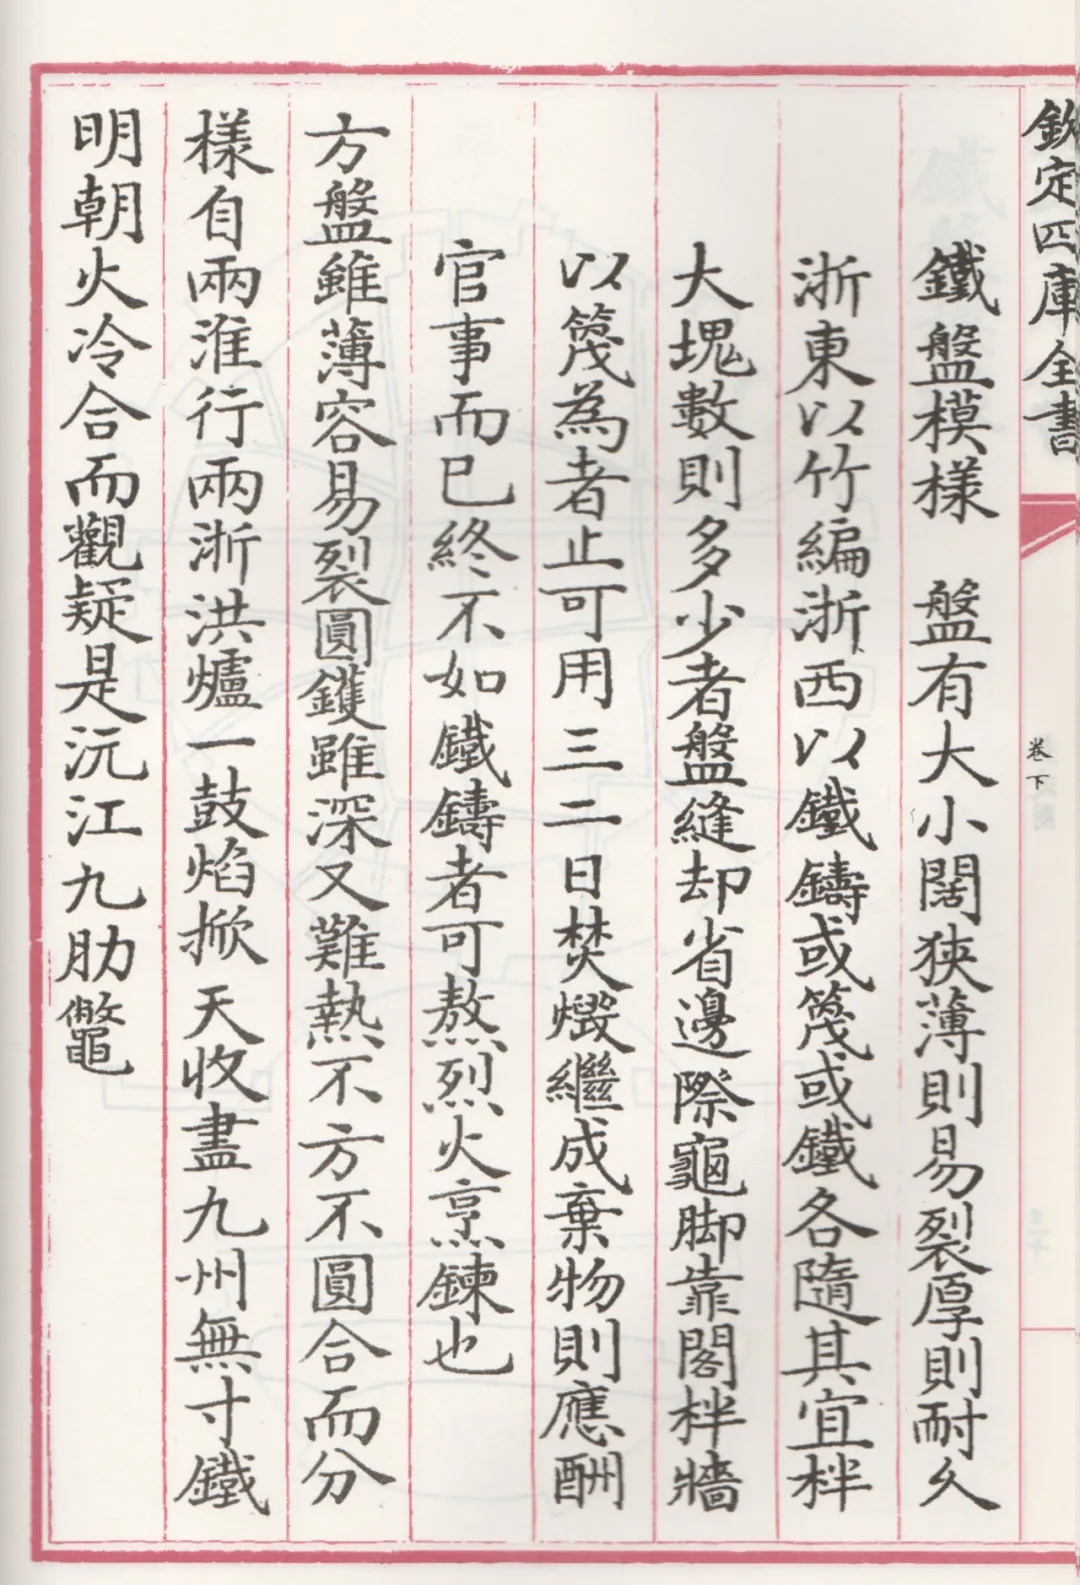 欽定四庫全書
卷下
鐵盤模樣　盤有大小闊狹薄則易裂厚則耐久
浙東以竹編浙西以鐵鑄或篾或鐵各隨其宜柈
大塊數則多少者盤縫却省邊際龜脚靠閣柈牆
以篾為者止可用三二日焚燬繼成棄物則應酬
官事而已終不如鐵鑄者可熬烈火烹鍊也
方盤雖薄容易裂圓鑊雖深又難熱不方不圓合而分
樣自兩淮行兩浙洪爐一鼓焰掀天收盡九州無寸鐵
明朝火冷合而觀疑是沅江九肋鼈